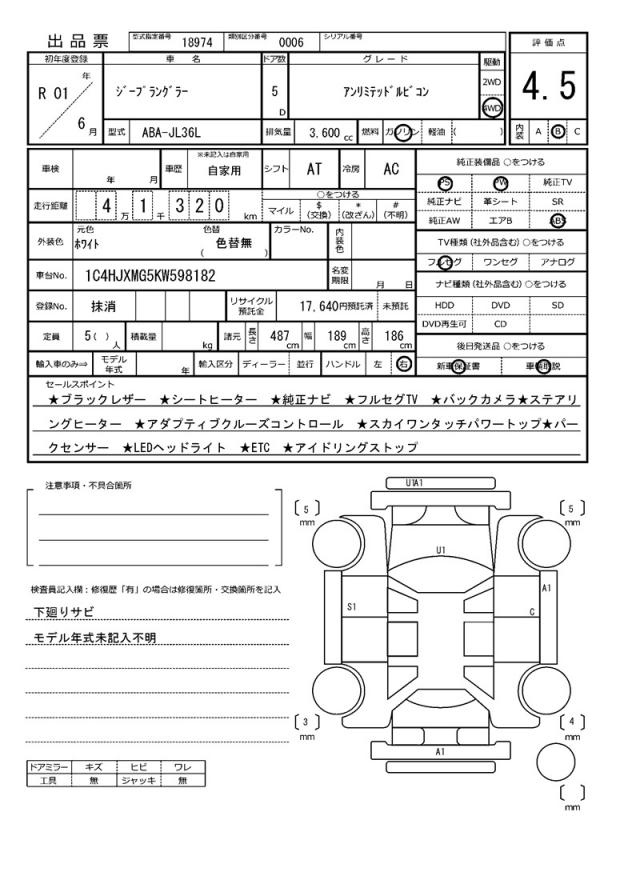 出品票 型式指定番号 18974 類別区分番号 0006 シリアル番号
評価点
4.5
内装 A B C
初年度登録 車名 ドア数 グレード 駆動
R 01 年 6 月
ジープラングラー 5 D アンリミテッドルビコン 2WD 4WD
型式 ABA-JL36L 排気量 3,600 cc 燃料 ガソリン 軽油 ( )
車検 年 月 車歴 ※未記入は自家用 自家用 シフト AT 冷房 AC
走行距離 4 万 1 千 3 2 0 km ○をつける マイル $ (交換) * (改ざん) # (不明)
外装色 元色 ホワイト 色替 ( 色替無 ) カラーNo. 内装色
車台No. 1C4HJXMG5KW598182 名変期限 月 日
登録No. 抹消 リサイクル預託金 17,640円預託済 未預託
定員 5( ) 人 積載量 kg 諸元 長さ 487 cm 幅 189 cm 高さ 186 cm
輸入車のみ⇒ モデル年式 年 輸入区分 ディーラー 並行 ハンドル 左 右
純正装備品 ○をつける
PS PW 純正TV
純正ナビ 革シート SR
純正AW エアB ABS
TV種類(社外品含む)○をつける
フルセグ ワンセグ アナログ
ナビ種類(社外品含む)○をつける
HDD DVD SD
DVD再生可 CD
後日発送品 ○をつける
新車保証書 車輌取説
セールスポイント
★ブラックレザー ★シートヒーター ★純正ナビ ★フルセグTV ★バックカメラ★ステアリ
ングヒーター ★アダプティブクルーズコントロール ★スカイワンタッチパワートップ★パー
クセンサー ★LEDヘッドライト ★ETC ★アイドリングストップ
注意事項・不具合箇所
検査員記入欄:修復歴「有」の場合は修復箇所・交換箇所を記入
下廻りサビ
モデル年式未記入不明
ドアミラー キズ ヒビ ワレ
工具 無 ジャッキ 無
U1A1
〔 5 〕 mm
〔 5 〕 mm
U1
A1
S1
C
〔 3 〕 mm
〔 4 〕 mm
A1
〔 〕 mm